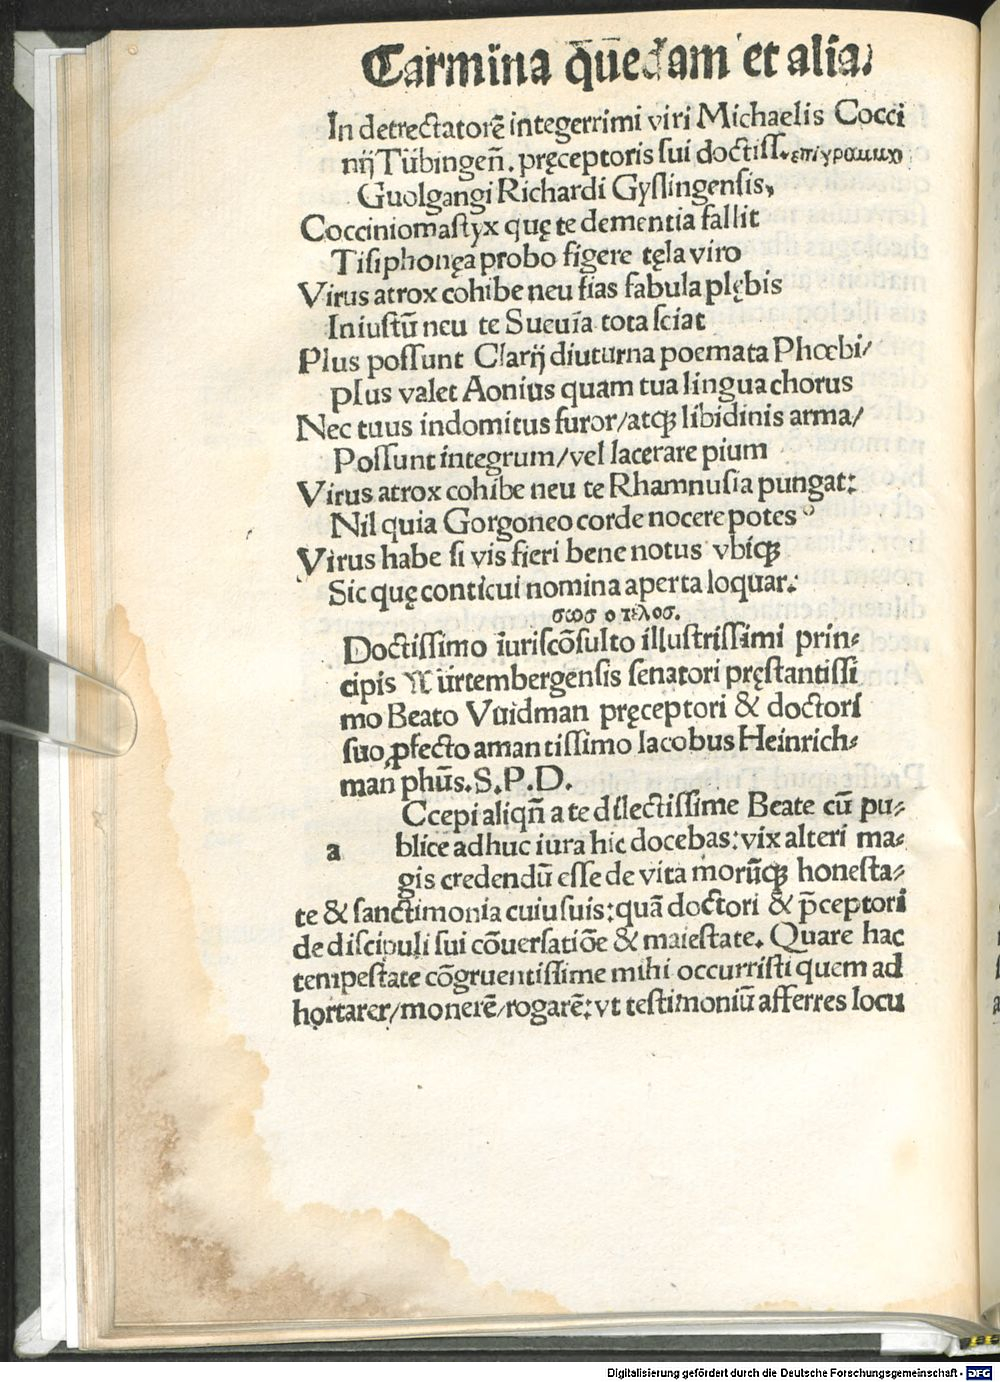 Carmina q̄uedam et alia,
In detrectatorē integerrimi viri Michaelis Cocci
nij Tübingeñ. pręceptoris sui doctiss. επιγραμμα
Guolgangi Richardi Gyslingensis,
Cocciniomastyx quę te dementia fallit
Tisiphonęa probo figere tęla viro
Virus atrox cohibe neu fias fabula plębis
Iniustū neu te Sueuia tota sciat
Plus possunt Clarij diuturna poemata Phœbi/
plus valet Aonius quam tua lingua chorus
Nec tuus indomitus furor/atqꝫ libidinis arma/
Possunt integrum/vel lacerare pium
Virus atrox cohibe neu te Rhamnusia pungat:
Nil quia Gorgoneo corde nocere potes
Virus habe si vis fieri bene notus vbiqꝫ
Sic quę conticui nomina aperta loquar.
σωσ ο τελοσ.
Doctissimo iuriscōsulto illustrissimi prin-
cipis Wurtembergensis senatori pręstantissi
mo Beato Vuidman pręceptori & doctori
suo ꝓfecto amantissimo Iacobus Heinrich-
man phūs. S. P. D.
Ccepi aliqñ a te dilectissime Beate cū pu-
a blice adhuc iura hic docebas: vix alteri ma-
gis credendū esse de vita morūqꝫ honesta-
te & sanctimonia cuiusuis: quā doctori & p̄ceptori
de discipuli sui cōuersatiōe & maiestate. Quare hac
tempestate cōgruentissime mihi occurristi quem ad
hortarer/monerē/rogarē: vt testimoniū afferres locu
Digitalisierung gefördert durch die Deutsche Forschungsgemeinschaft - DFG